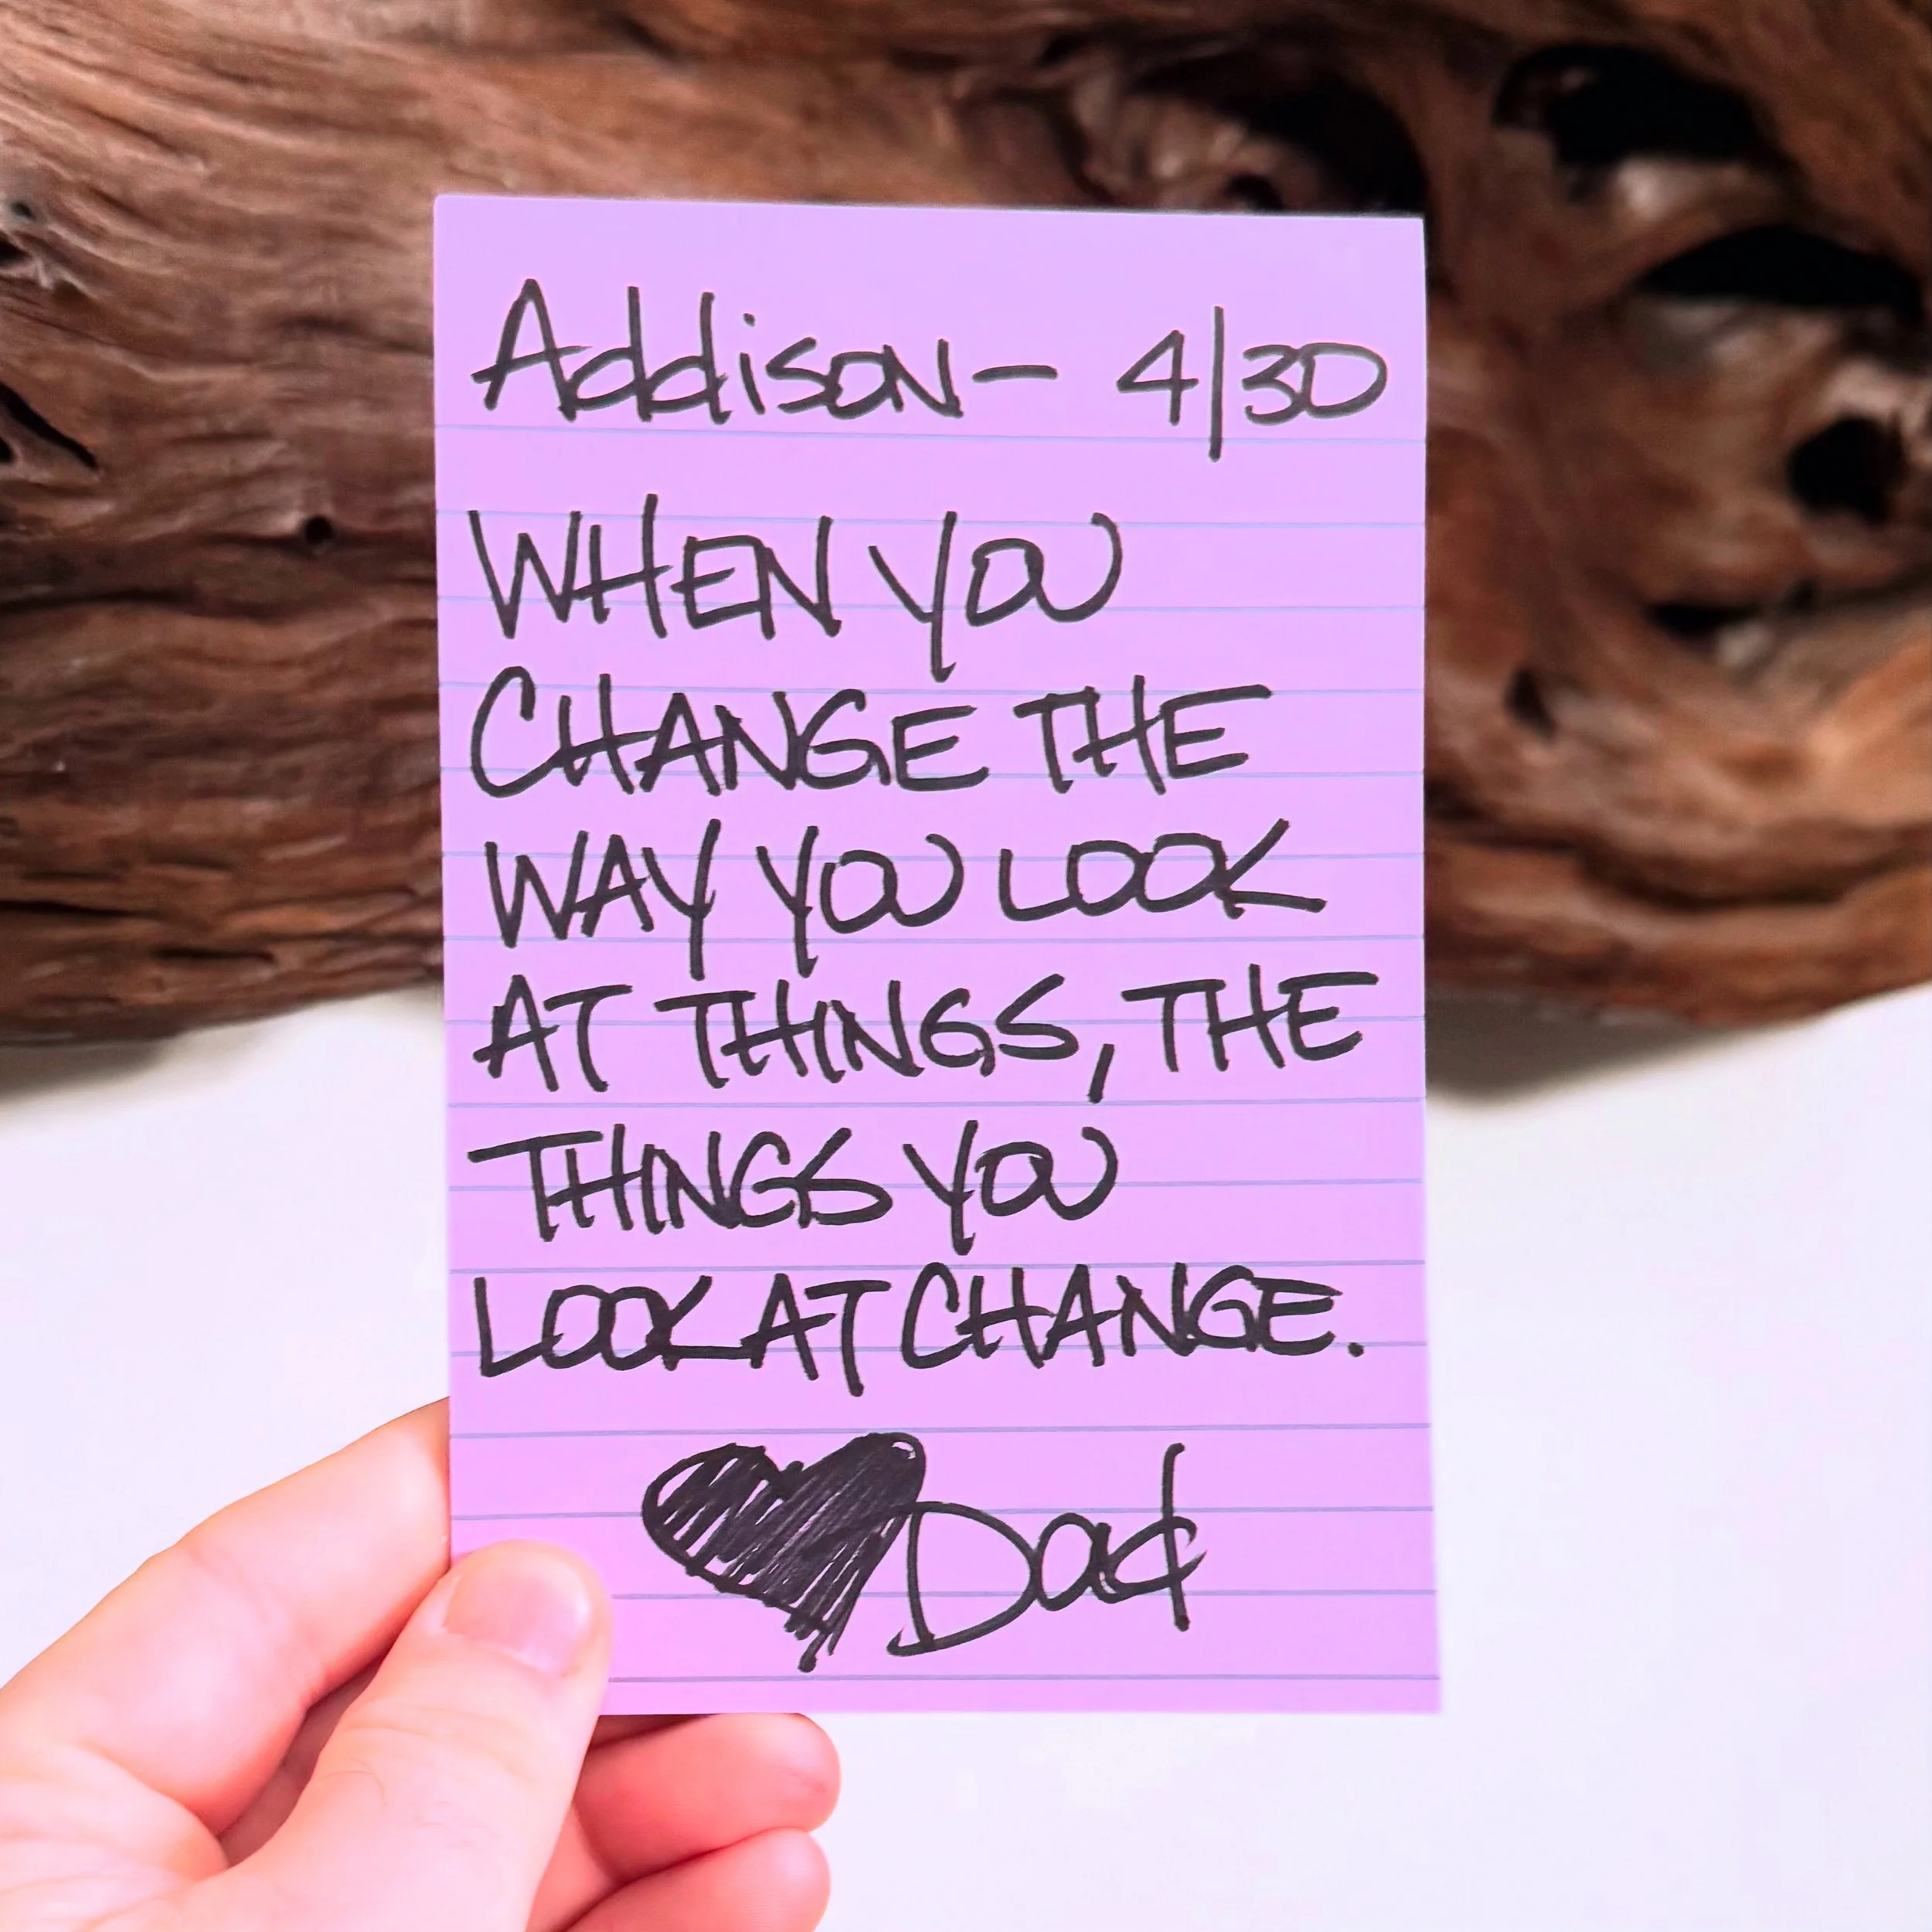 Addison- 4/30
WHEN YOU
CHANGE THE
WAY YOU LOOK
AT THINGS, THE
THINGS YOU
LOOK AT CHANGE.
Dad